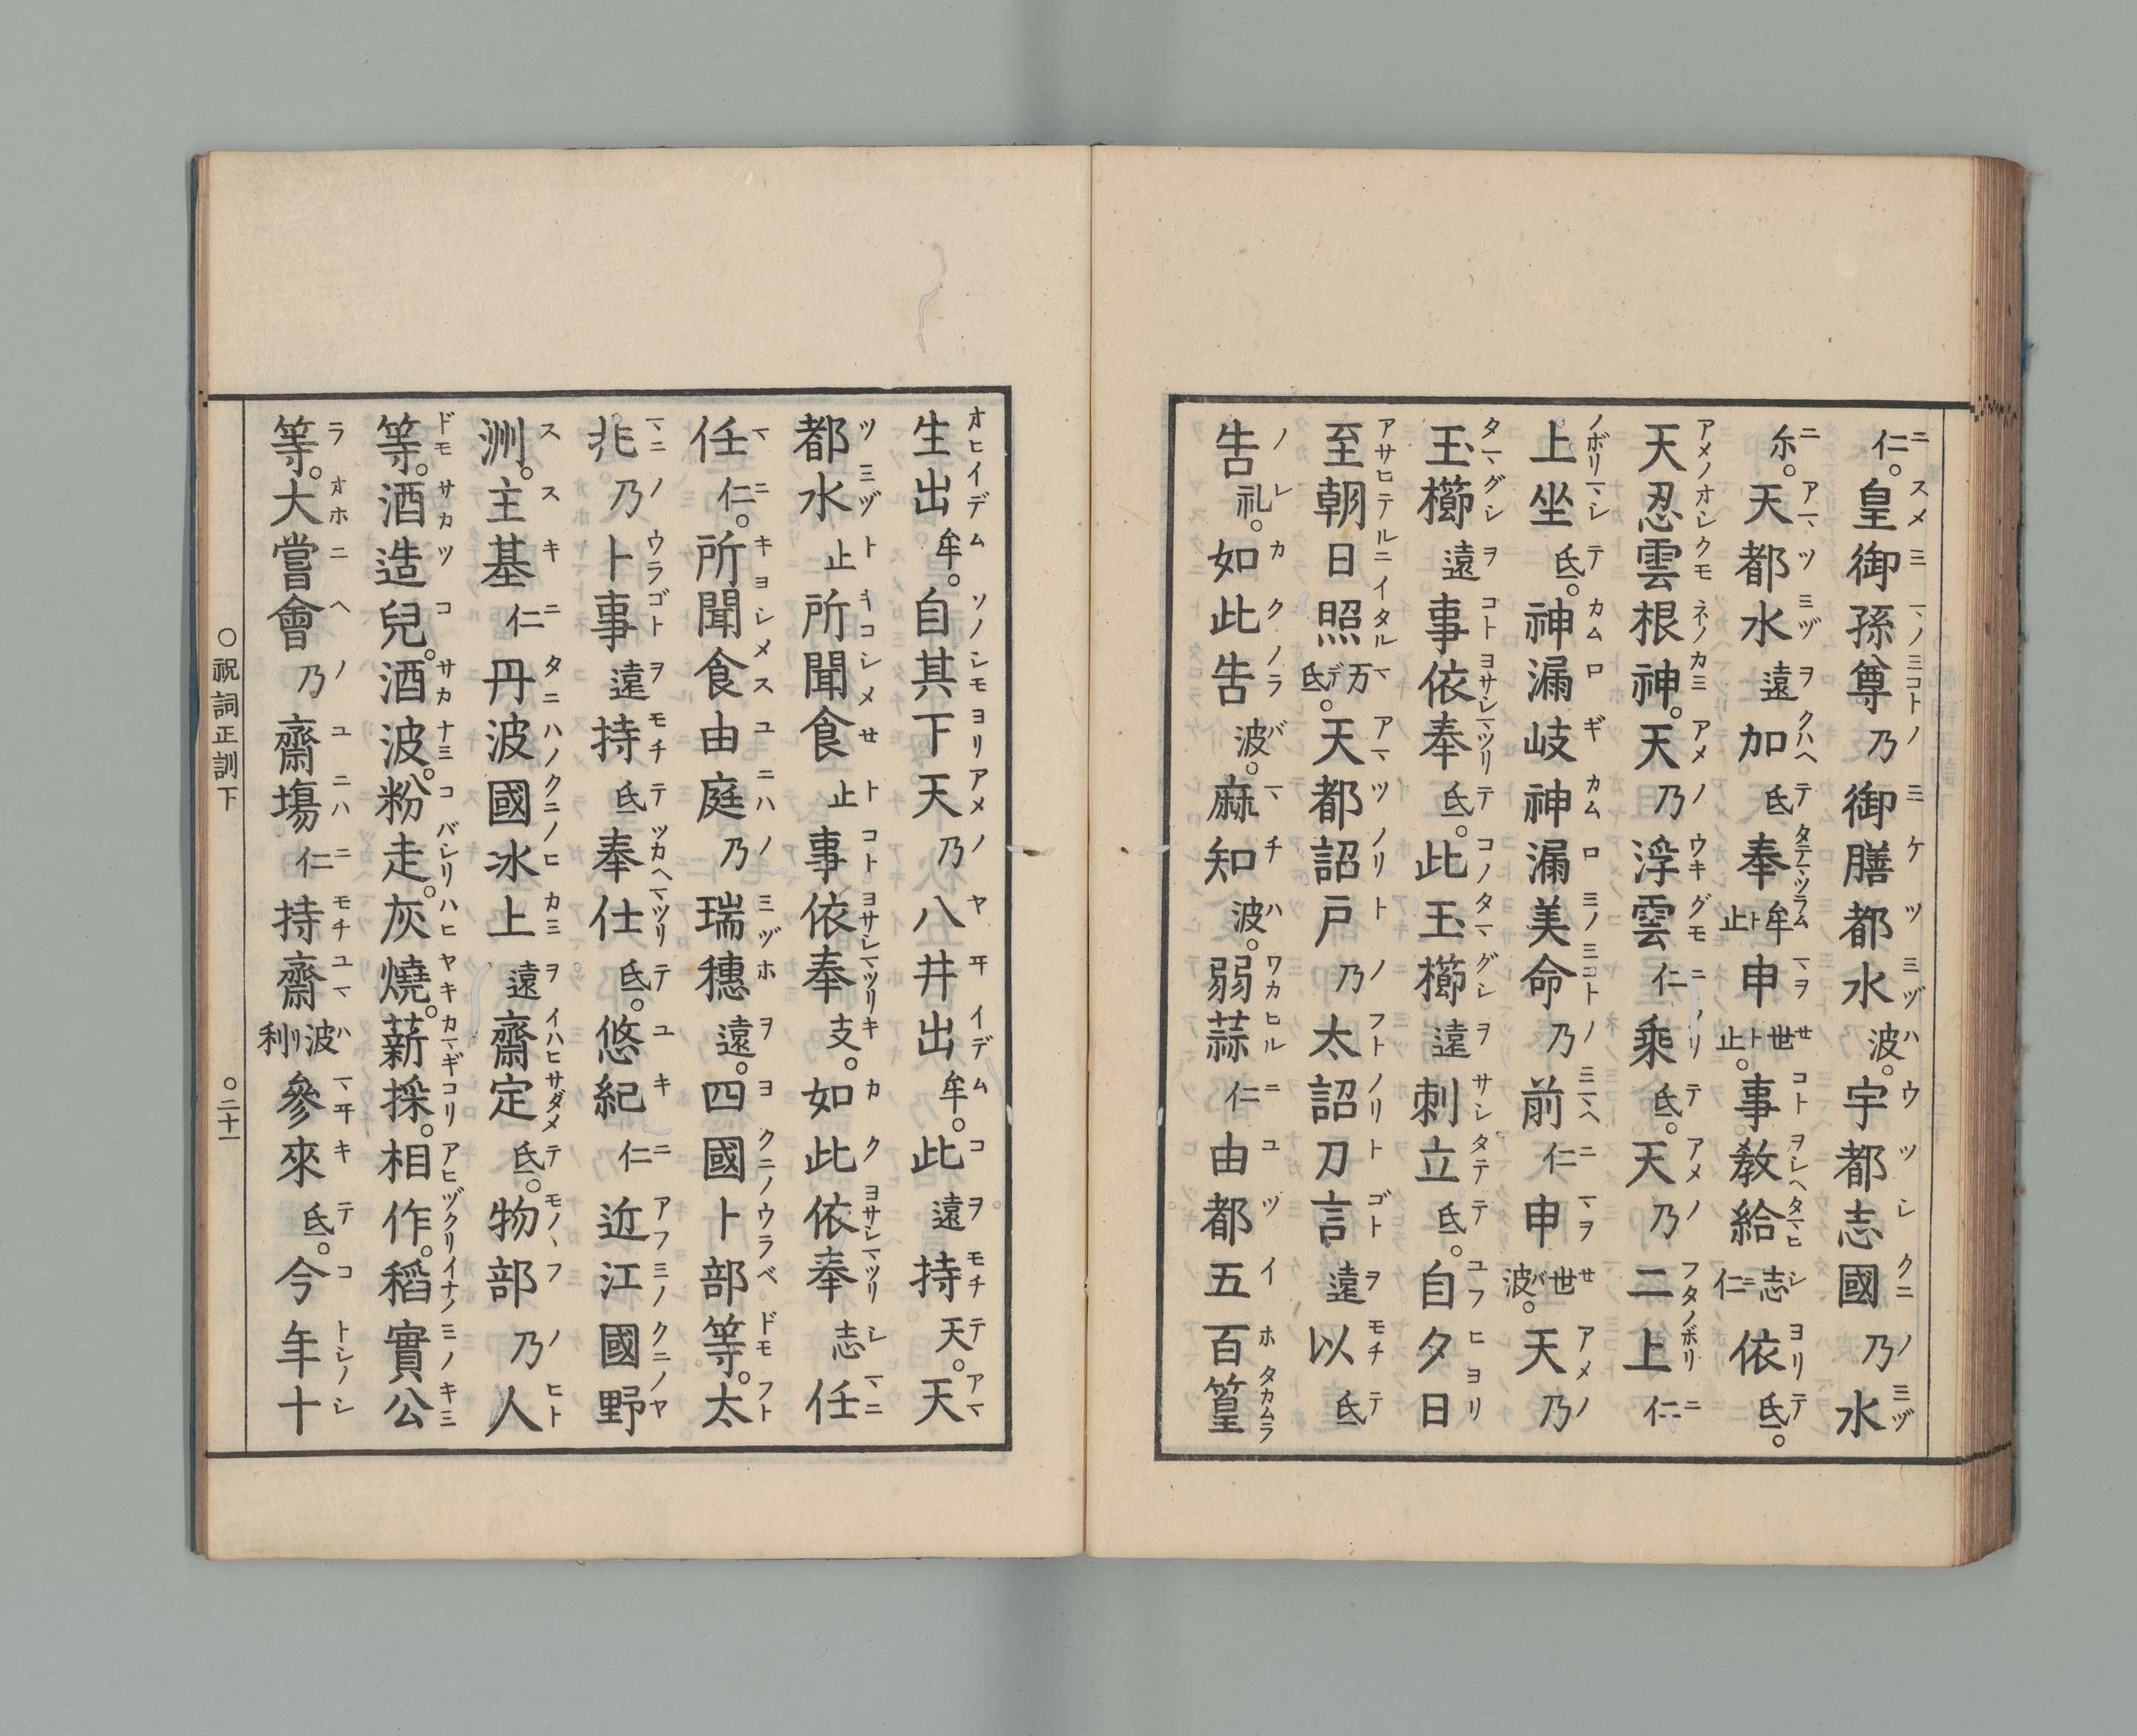 仁。皇御孫尊乃御膳都水波。宇都志國乃水
尓。天都水遠加氐奉牟止申世止。事教給志仁依氐。
天忍雲根神。天乃浮雲仁乘氐。天乃二上仁
上坐氐。神漏岐神漏美命乃前仁申世波。天乃
玉櫛遠事依奉氐。此玉櫛遠刺立氐。自夕日
至朝日照万氐。天都詔戸乃太詔刀言遠以氐
告礼。如此告波。麻知波。弱蒜仁由都五百篁
生出牟。自其下天乃八井出牟。此遠持天。天
都水止所聞食止事依奉支。如此依奉志任
任仁。所聞食由庭乃瑞穗遠。四國卜部等。太
兆乃卜事遠持氐奉仕氐。悠紀仁近江國野
洲。主基仁丹波國氷上遠齋定氐。物部乃人
等。酒造兒。酒波。粉走。灰燒。薪採。相作。稻實公
等。大嘗會乃齋塲仁持齋波利參來氐。今年十
○祝詞正訓下 ○二十一